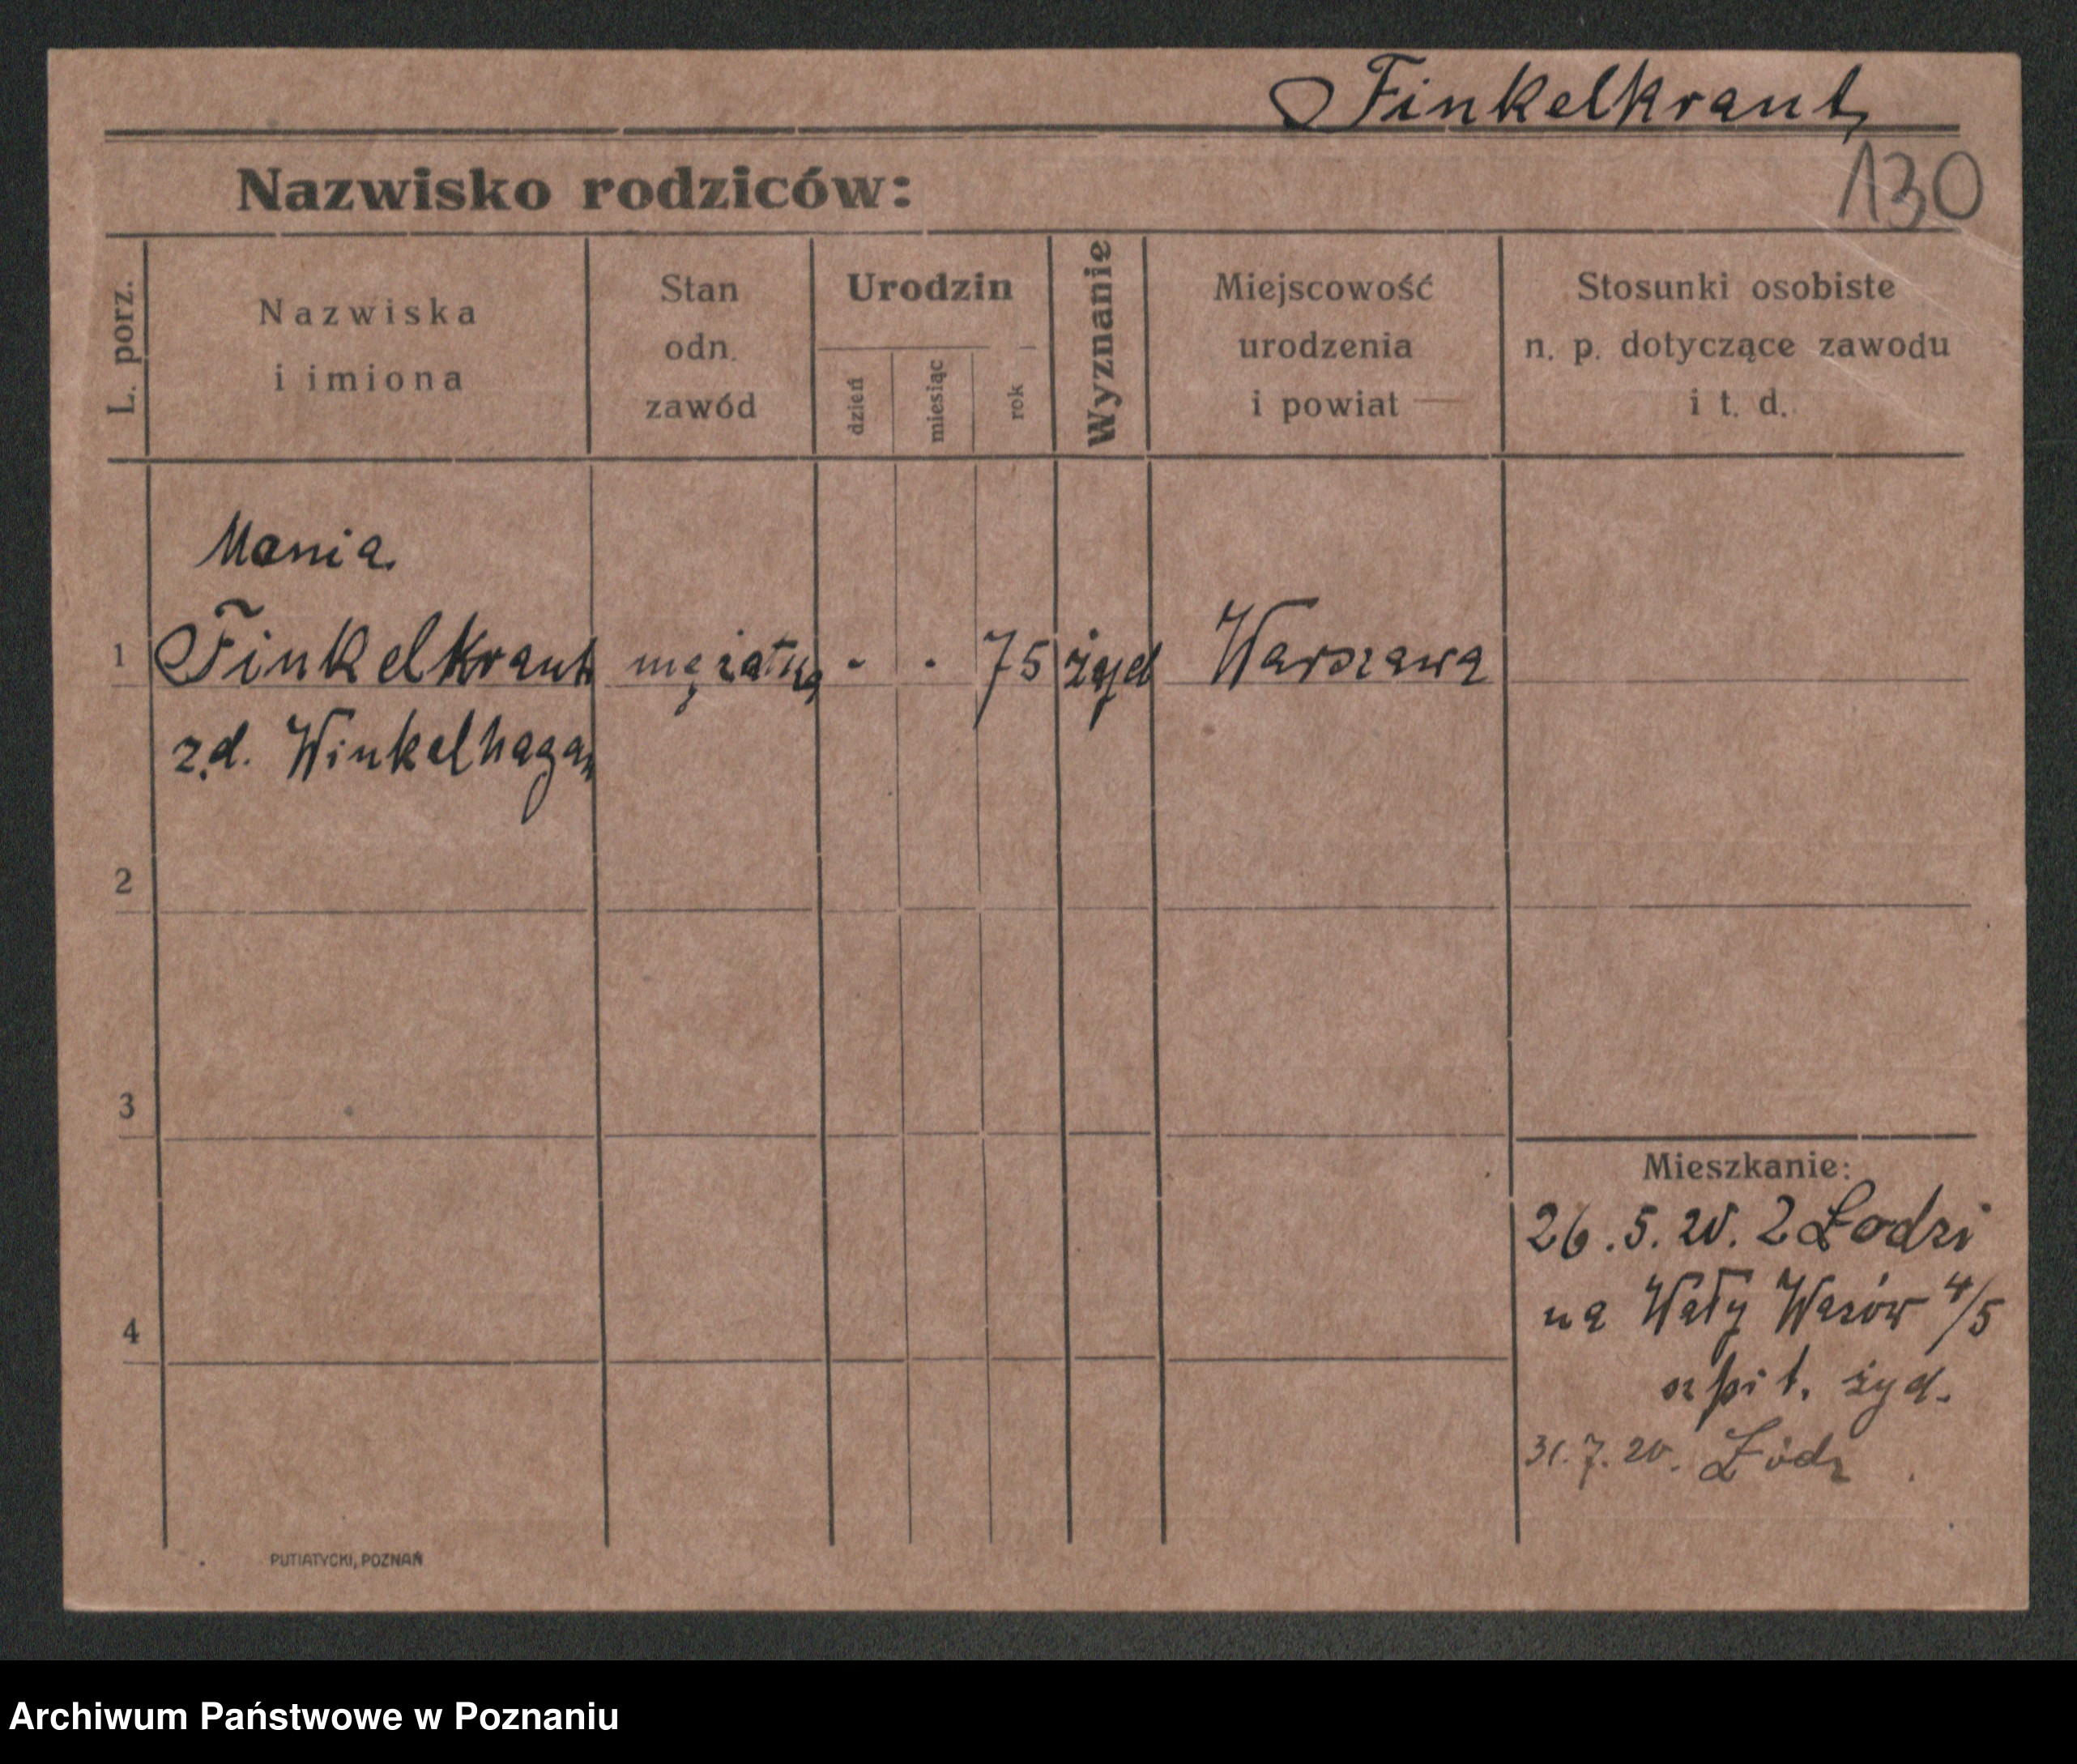 Finkelkraut
130
Nazwisko rodziców:
L. porz.
Nazwiska
i imiona
Stan
odn.
zawód
Urodzin
dzień
miesiąc
rok
Wyznanie
Miejscowość
urodzenia
i powiat
Stosunki osobiste
n. p. dotyczące zawodu
i t. d.
Mania
1 Finkelkraut mężatka - . 75 żyd Warszawa
z.d. Winkelhagen
2
3
4
Mieszkanie:
26.5.20. z Łodzi
na Wały Wazów 4/5
szpit. żyd.
31.7.20. Łódz
PUTIATYCKI, POZNAŃ
Archiwum Państwowe w Poznaniu